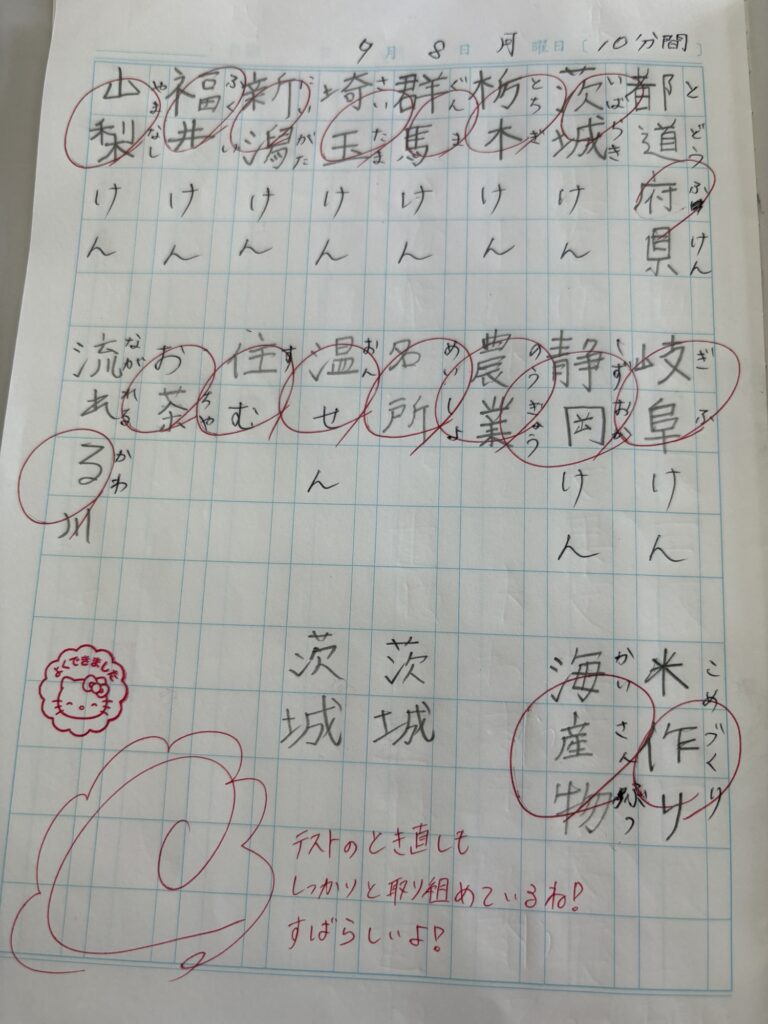 9月8日月曜日〔10分間〕
都道府県
とどうふけん
茨城けん
いばらき
栃木けん
とちぎ
群馬けん
ぐんま
埼玉けん
さいたま
新潟けん
にいがた
福井けん
ふくい
山梨けん
やまなし
岐阜けん
ぎふ
静岡けん
しずおか
農業
のうぎょう
名所
めいしょ
温せん
おん
住む
す
お茶
ちゃ
流れる川
ながれるかわ
米作り
こめづくり
海産物
かいさんぶつ
茨城
茨城
よくできました
テストのとき直しも
しっかりと取り組めているね!
すばらしいよ!